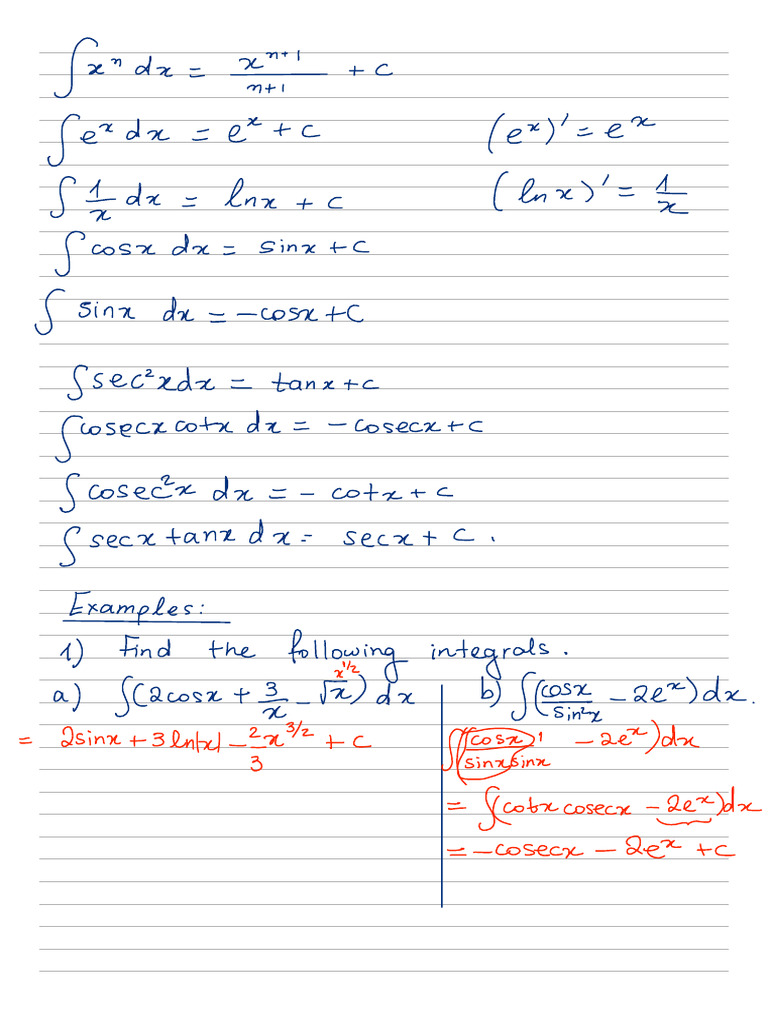 ∫ xⁿ dx = xⁿ⁺¹/n+1 + c
∫ eˣ dx = eˣ + c    (eˣ)' = eˣ
∫ 1/x dx = lnx + c    (lnx)' = 1/x
∫ cosx dx = sinx + c
∫ sinx dx = -cosx + C
∫ sec²x dx = tanx + c
∫ cosecx cotx dx = - cosecx + c
∫ cosec²x dx = - cotx + c
∫ secx tanx dx = secx + c.
Examples:
1) Find the following integrals.
x^1/2
a) ∫(2cosx + 3/x - √x) dx    b) ∫(cosx/sin²x - 2eˣ)dx.
= 2sinx + 3 ln|x| - 2/3 x^3/2 + c    ∫(cosx 1/sinx sinx - 2eˣ)dx
= ∫(cotx cosecx - 2eˣ)dx
= -cosecx - 2eˣ + c